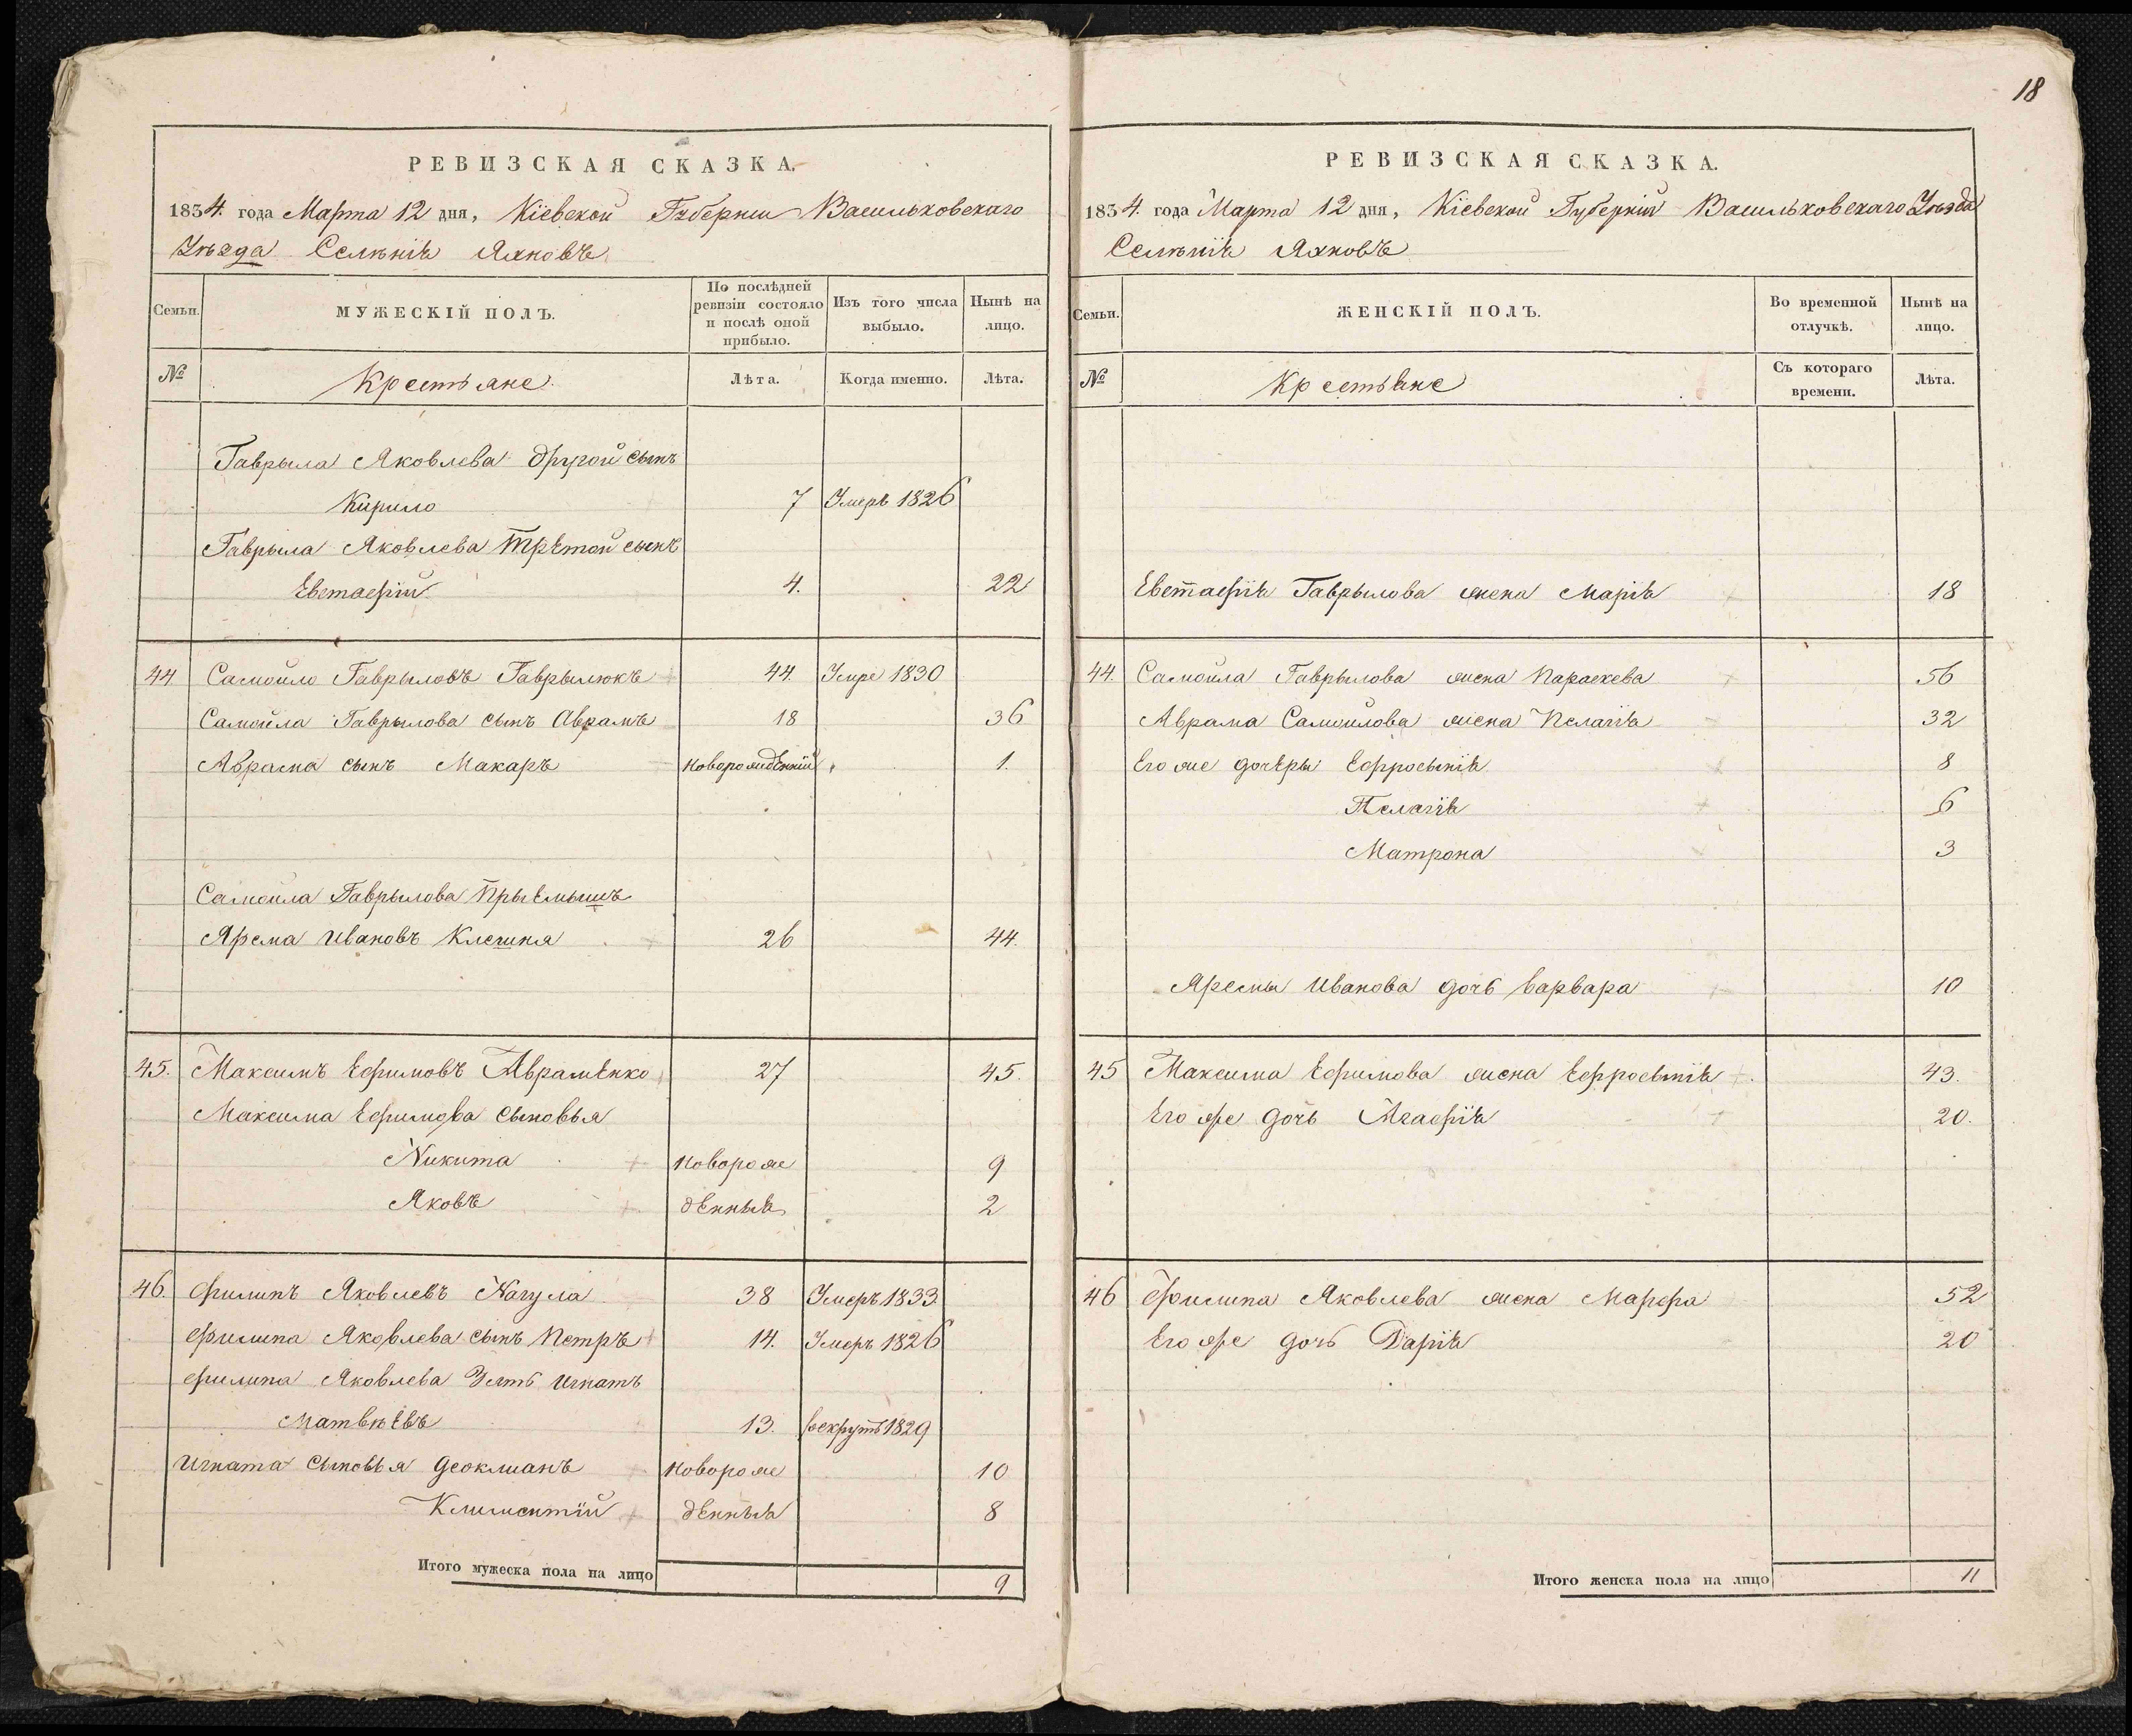 18
РЕВИЗСКАЯ СКАЗКА.
1834. года Марта 12 дня, Кіевской Губерніи Васильковскаго
Уѣзда Селѣнія Яхновъ
Семьи. МУЖЕСКІЙ ПОЛЪ. По послѣдней ревизіи состояло и послѣ оной прибыло. Изъ того числа выбыло. Нынѣ на лицо.
№ Крестьяне. Лѣта. Когда именно. Лѣта.
Гаврыла Яковлева другой сынъ
Кирило 7 Умеръ 1826
Гаврыла Яковлева третой сынъ
Евстафій 4. 22
44 Самойло Гаврыловъ Гаврылюкъ 44. Умре 1830
Самойла Гаврылова сынъ Аврамъ 18 36
Аврама сынъ Макаръ новорожденній 1.
Самойла Гаврылова прыемышъ
Ярема Ивановъ 26 44.
45. Максимъ Ефимовъ Авраменко 27 45.
Максима Ефимова сыновья
Никита новорож 9
Яковъ денныя 2
46. Филипъ Яковлевъ Нагула 38 Умеръ 1833.
Филипа Яковлева сынъ Петръ 14. Умеръ 1826
Филипа Яковлева Зять Игнатъ
Матвѣевъ 13. рекрутъ 1829
Игната сыновья Деоклианъ новорож 10
Климентій денныя 8
Итого мужеска пола на лицо 9
РЕВИЗСКАЯ СКАЗКА.
1834. года Марта 12 дня, Кіевской Губерніи Васильковскаго Уѣзда
Селѣнія Яхновъ
Семьи. ЖЕНСКІЙ ПОЛЪ. Во временной отлучкѣ. Нынѣ на лицо.
№ Крестьяне Съ котораго времени. Лѣта.
Евстафія Гаврылова жена Марія 18
44. Самойла Гаврылова жена Параскева 56
Аврама Самойлова жена Пелагія 32
Его же дочеры Ефросынія 8
Пелагія 6
Матрона 3
Яремы Иванова дочь Варвара 10
45 Максима Ефимова жена Ефросынія 43.
Его же дочь Агафія 20.
46 Филипа Яковлева жена Марфа 52
Его же дочь Дарія 20
Итого женска пола на лицо 11